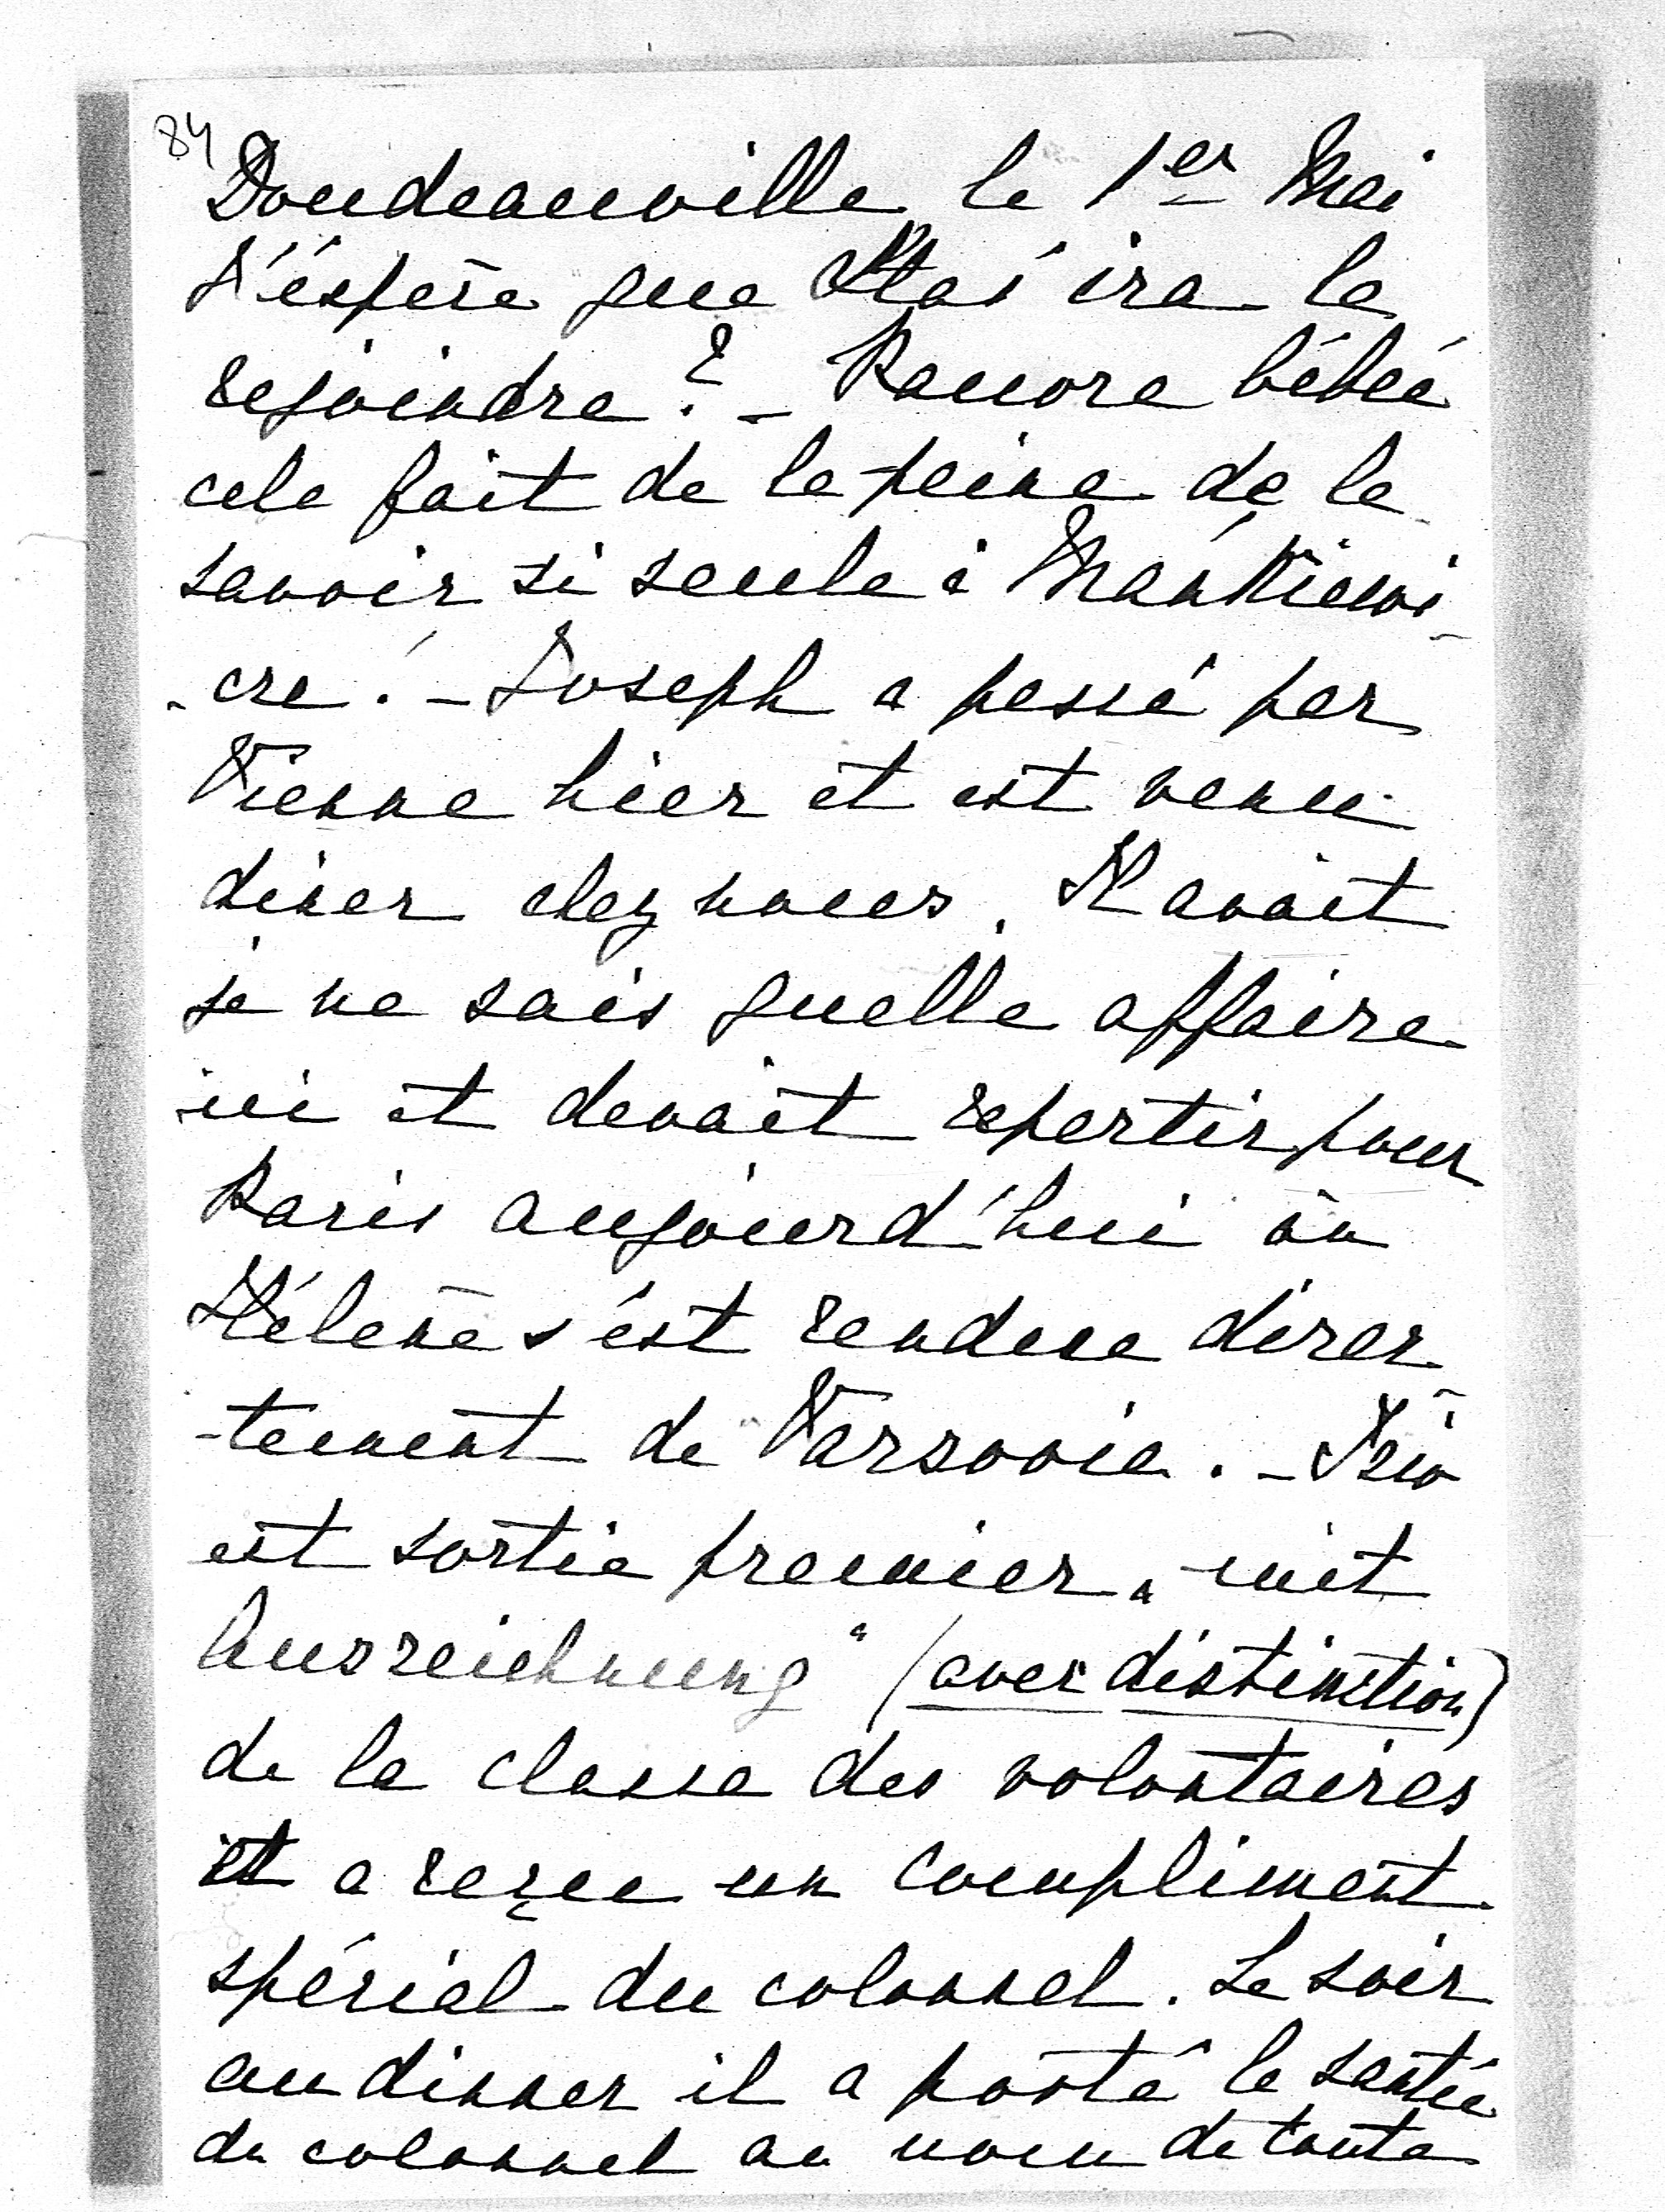 84
Doudeauville le 1er Mai
J'éspère que Staś ira la
rejoindre ? _ Pauvre bébée
cela fait de la peine de la
savoir si seule à Mańkiewi-
-cze ! _ Joseph a passé par
Vienne hier et est venu
diner chez nous. Il avait
je ne sais quelle affaire
ici et devait repartir pour
Paris aujourd'hui où
Hélène s'est rendue direc
-tement de Varsovie . _
est sortie premier „ mit
Auszeichnung “ (avec distinction)
de la classe des volontaires
et a reçu un compliment
spécial du colonnel. Le soir
au dinner il a porté la santée
du colonnel au nom de toute